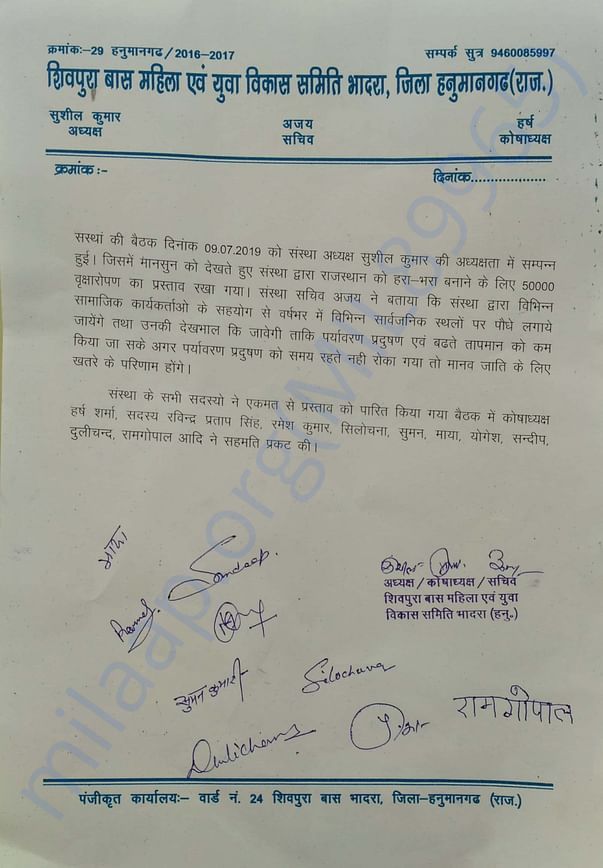 क्रमांक:-29 हनुमानगढ/2016-2017 सम्पर्क सुत्र 9460085997
शिवपुरा बास महिला एवं युवा विकास समिति भादरा, जिला हनुमानगढ(राज.)
सुशील कुमार अजय हर्ष
अध्यक्ष सचिव कोषाध्यक्ष
क्रमांक:- दिनांक...................
सस्थां की बैठक दिनांक 09.07.2019 को संस्था अध्यक्ष सुशील कुमार की अध्यक्षता में सम्पन्न
हुई। जिसमें मानसुन को देखते हुए संस्था द्वारा राजस्थान को हरा-भरा बनाने के लिए 50000
वृक्षारोपण का प्रस्ताव रखा गया। संस्था सचिव अजय ने बताया कि संस्था द्वारा विभिन्न
सामाजिक कार्यकर्ताओ के सहयोग से वर्षभर में विभिन्न सार्वजनिक स्थलों पर पौधे लगाये
जायेंगे तथा उनकी देखभाल कि जावेगी ताकि पर्यावरण प्रदुषण एवं बढते तापमान को कम
किया जा सके अगर पर्यावरण प्रदुषण को समय रहते नही रोका गया तो मानव जाति के लिए
खतरे के परिणाम होंगे।
संस्था के सभी सदस्यो ने एकमत से प्रस्ताव को पारित किया गया बैठक में कोषाध्यक्ष
हर्ष शर्मा, सदस्य रविन्द्र प्रताप सिंह, रमेश कुमार, सिलोचना, सुमन, माया, योगेश, सन्दीप,
दुलीचन्द, रामगोपाल आदि ने सहमति प्रकट की।
माया
Sandeep.
Ramesh
अध्यक्ष/कोषाध्यक्ष/सचिव
शिवपुरा बास महिला एवं युवा
विकास समिति भादरा (हनु.)
सुमन कुमारी
Silochana
Dulichand
रामगोपाल
पंजीकृत कार्यालय:- वार्ड नं. 24 शिवपुरा बास भादरा, जिला-हनुमानगढ (राज.)